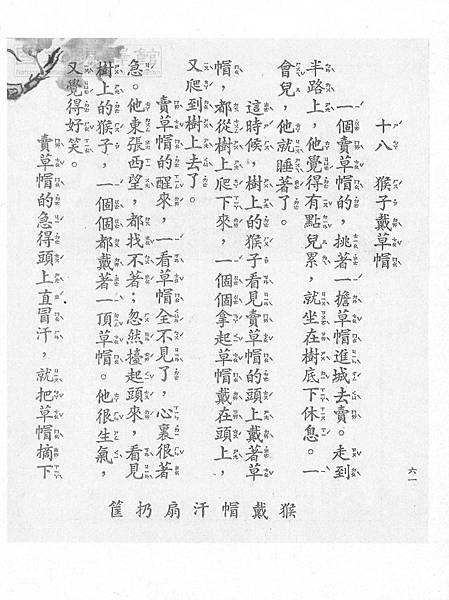 十八　猴子戴草帽
一個賣草帽的，挑著一擔草帽進城去賣。走到
半路上，他覺得有點兒累，就坐在樹底下休息。一
會兒，他就睡著了。
這時候，樹上的猴子看見賣草帽的頭上戴著草
帽，都從樹上爬下來，一個個拿起草帽戴在頭上，
又爬到樹上去了。
賣草帽的醒來，一看草帽全不見了，心裏很著
急。他東張西望，都找不著；忽然擡起頭來，看見
樹上的猴子，一個個都戴著一頂草帽。他很生氣，
又覺得好笑。
賣草帽的急得頭上直冒汗，就把草帽摘下
六一
猴戴帽汗扇扔筐